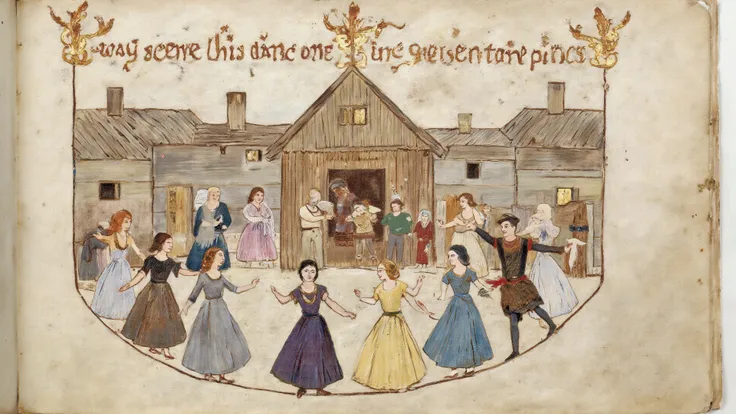 way scene this danc one inc gresentare pincs